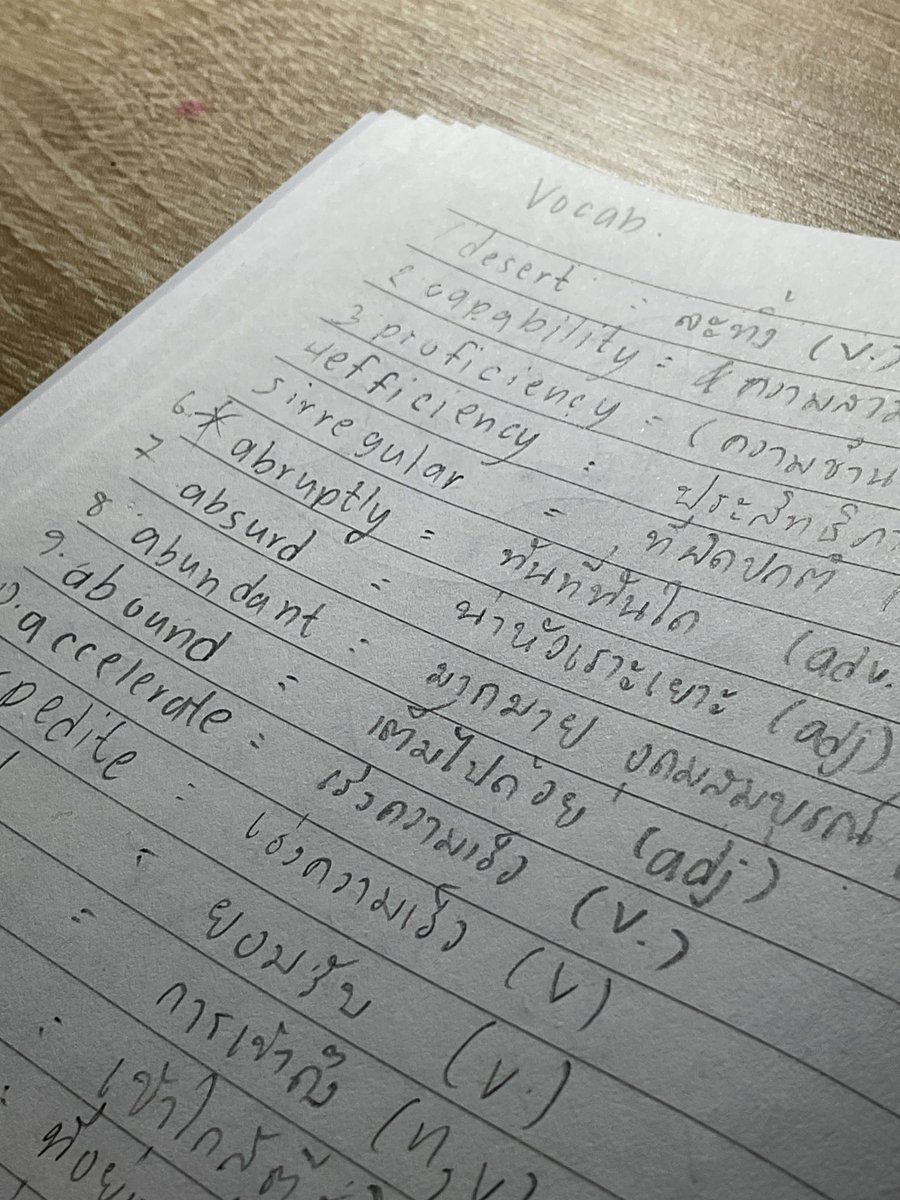 Vocab.
1 desert : ละทิ้ง (v.)
2 capability = ความสาม
3 proficiency = (ความชำน
4 efficiency : ประสิทธิภา
5 irregular = ที่ผิดปกติ (
6. * abruptly = ทันทีทันใด (adv.
7 absurd = น่าหัวเราะเยาะ (adj)
8. abundant : มากมาย อุดมสมบูรณ์ (
9. abound = เต็มไปด้วย (adj)
0. accelerate = เร่งความเร็ว (v.)
pedite : เร่งความเร็ว (v)
: ยอมรับ (v.)
= การเข้าถึง (n, v)
: เข้าใกล้
: